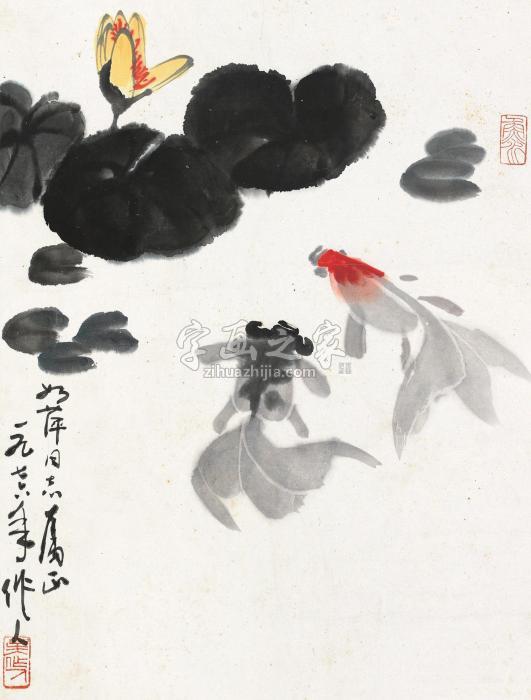 如萍同志属正
一九七六年作人
字画之家
zihuazhijia.com